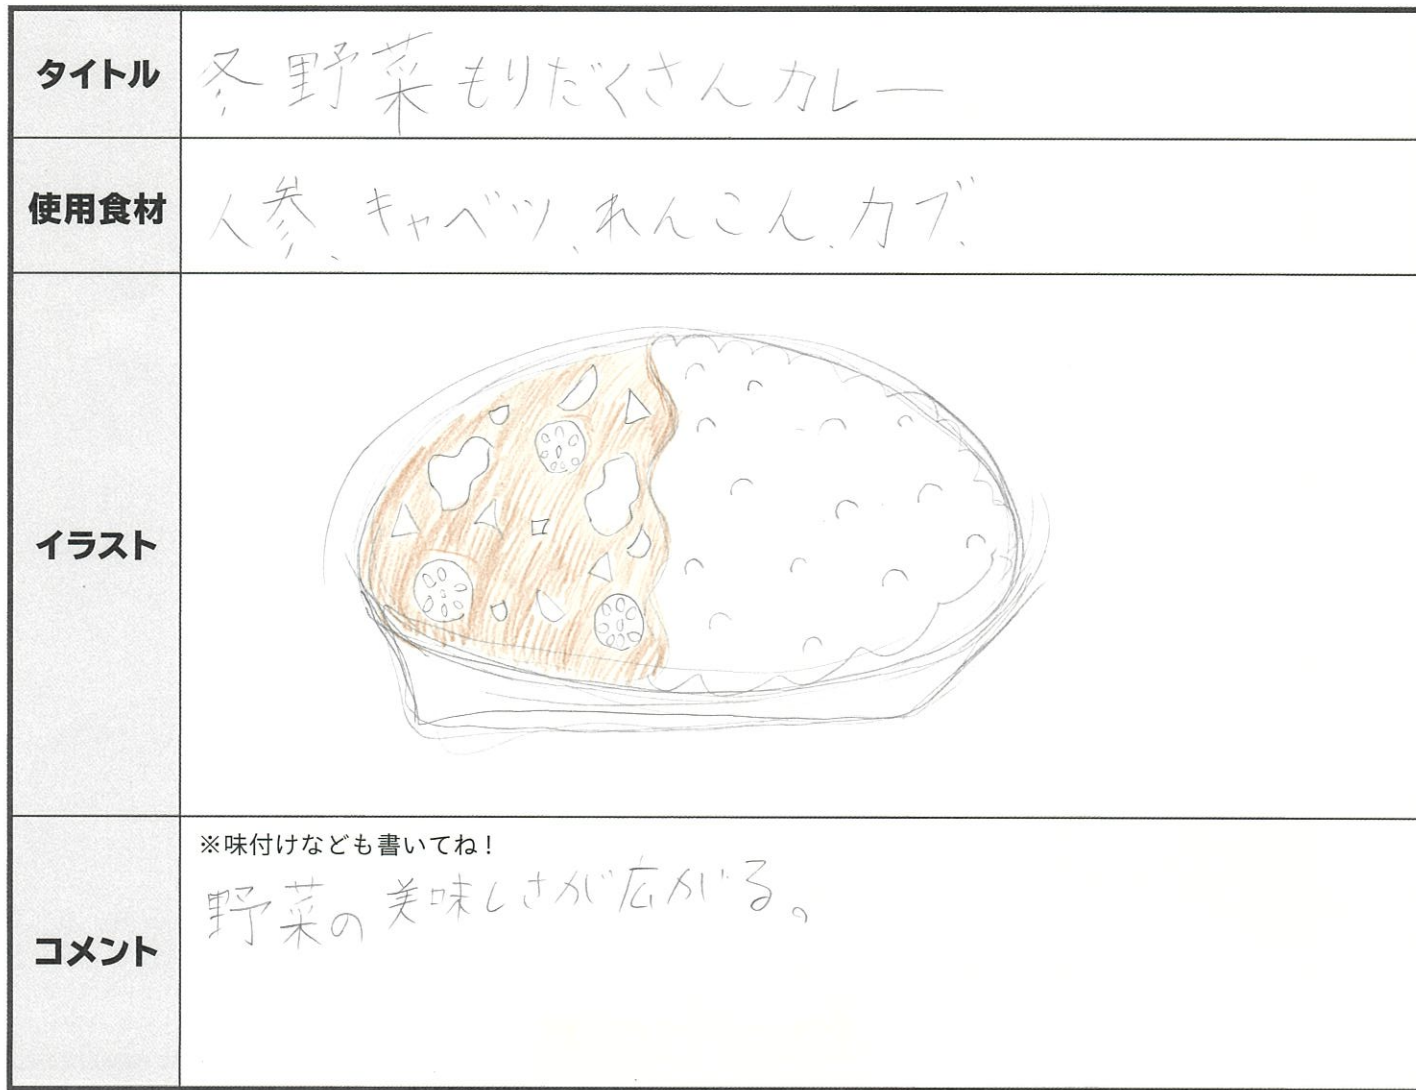 タイトル
冬野菜もりだくさんカレー
使用食材
人参、キャベツ、れんこん、カブ、
イラスト
コメント
※味付けなども書いてね！
野菜の美味しさが広がる。